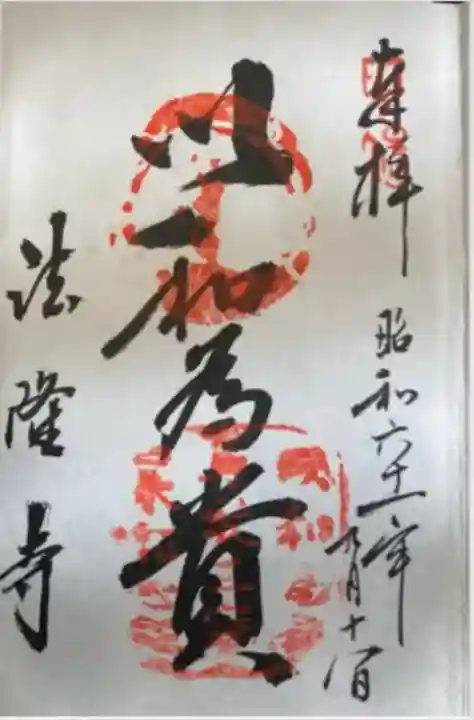 奉拝 昭和六十一年九月十八日
以和為貴
法隆寺